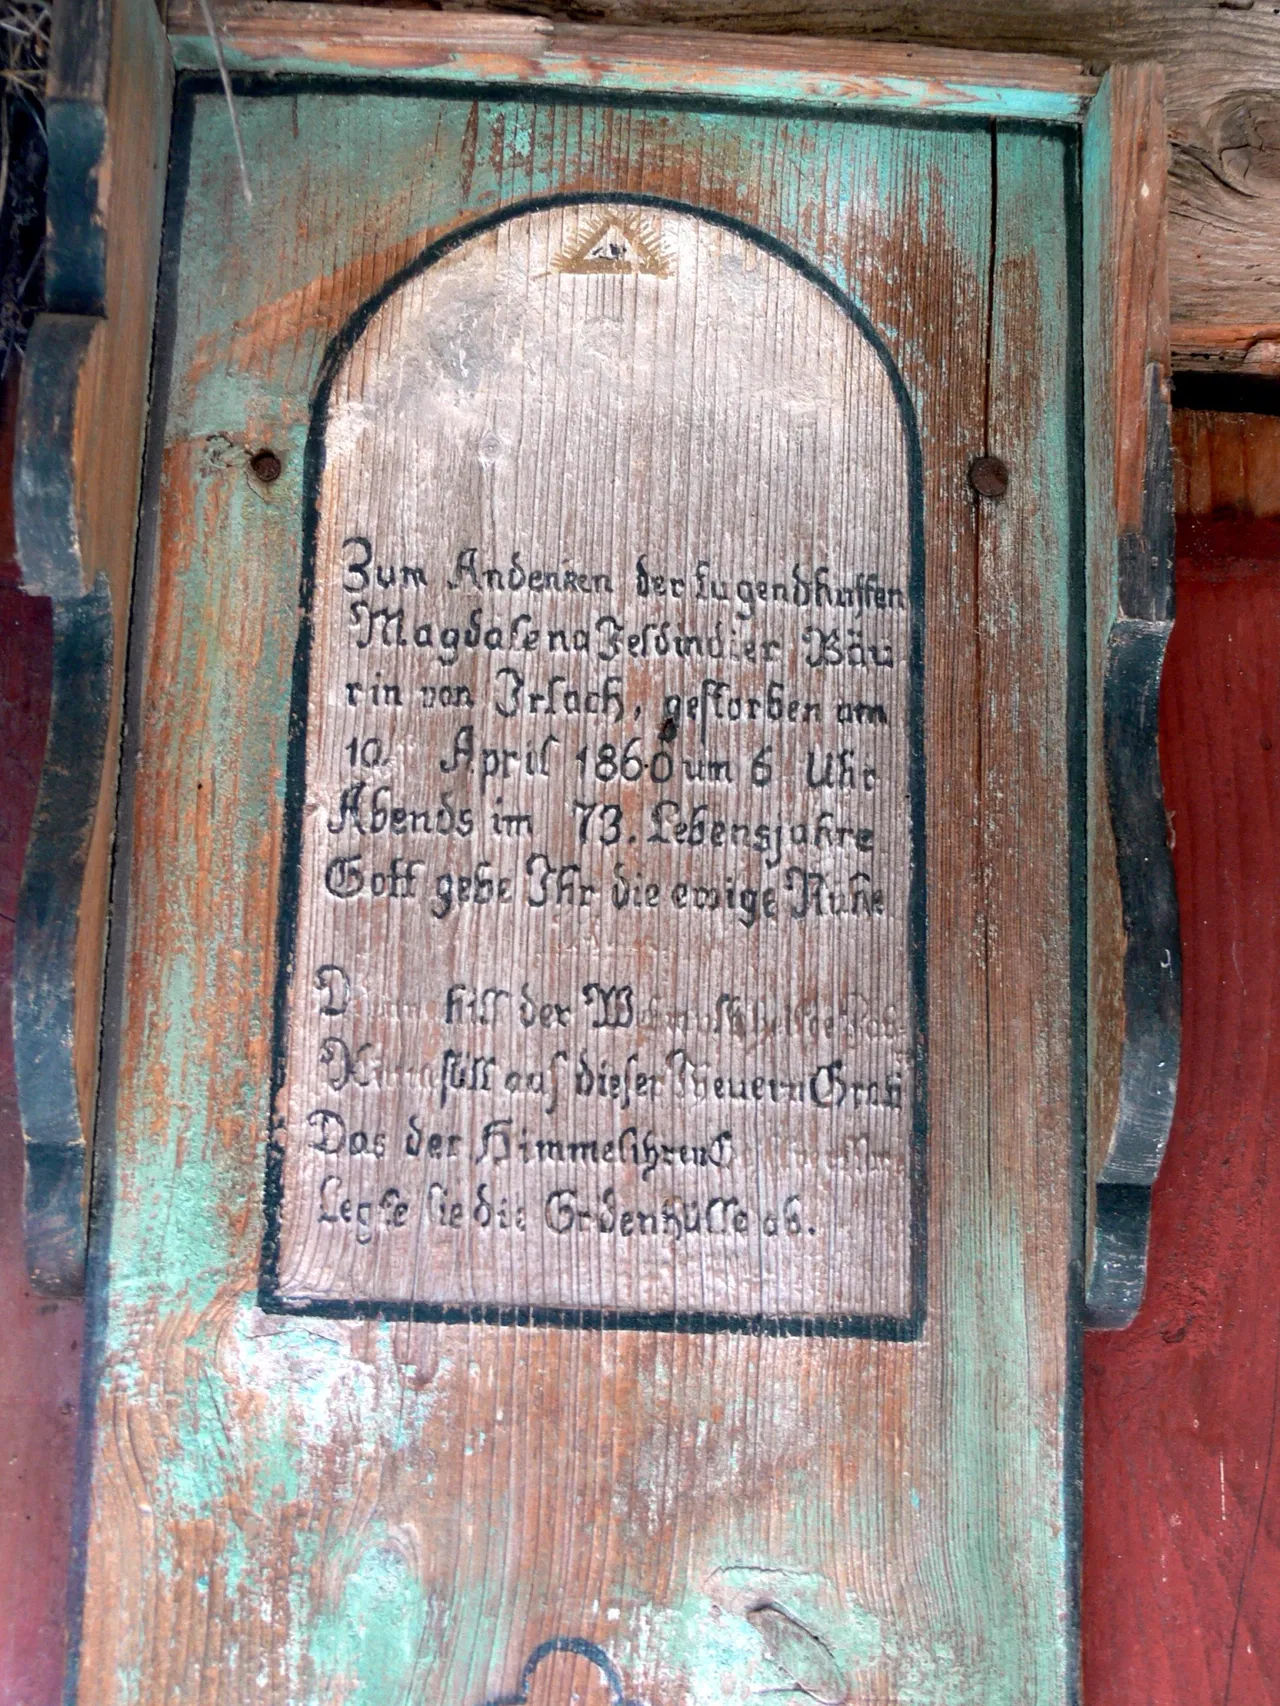 Zum Andenken der tugendhaften
Magdalena Feldmdier Bäu
rin von Irlach, gestorben am
10. April 1860 um 6 Uhr
Abends im 73. Lebensjahre
Gott gebe Ihr die ewige Ruhe
hilf der
still auf dieser Theuern Grab
Das der Himmel ihren
Legte sie die Erdenhülle ab.